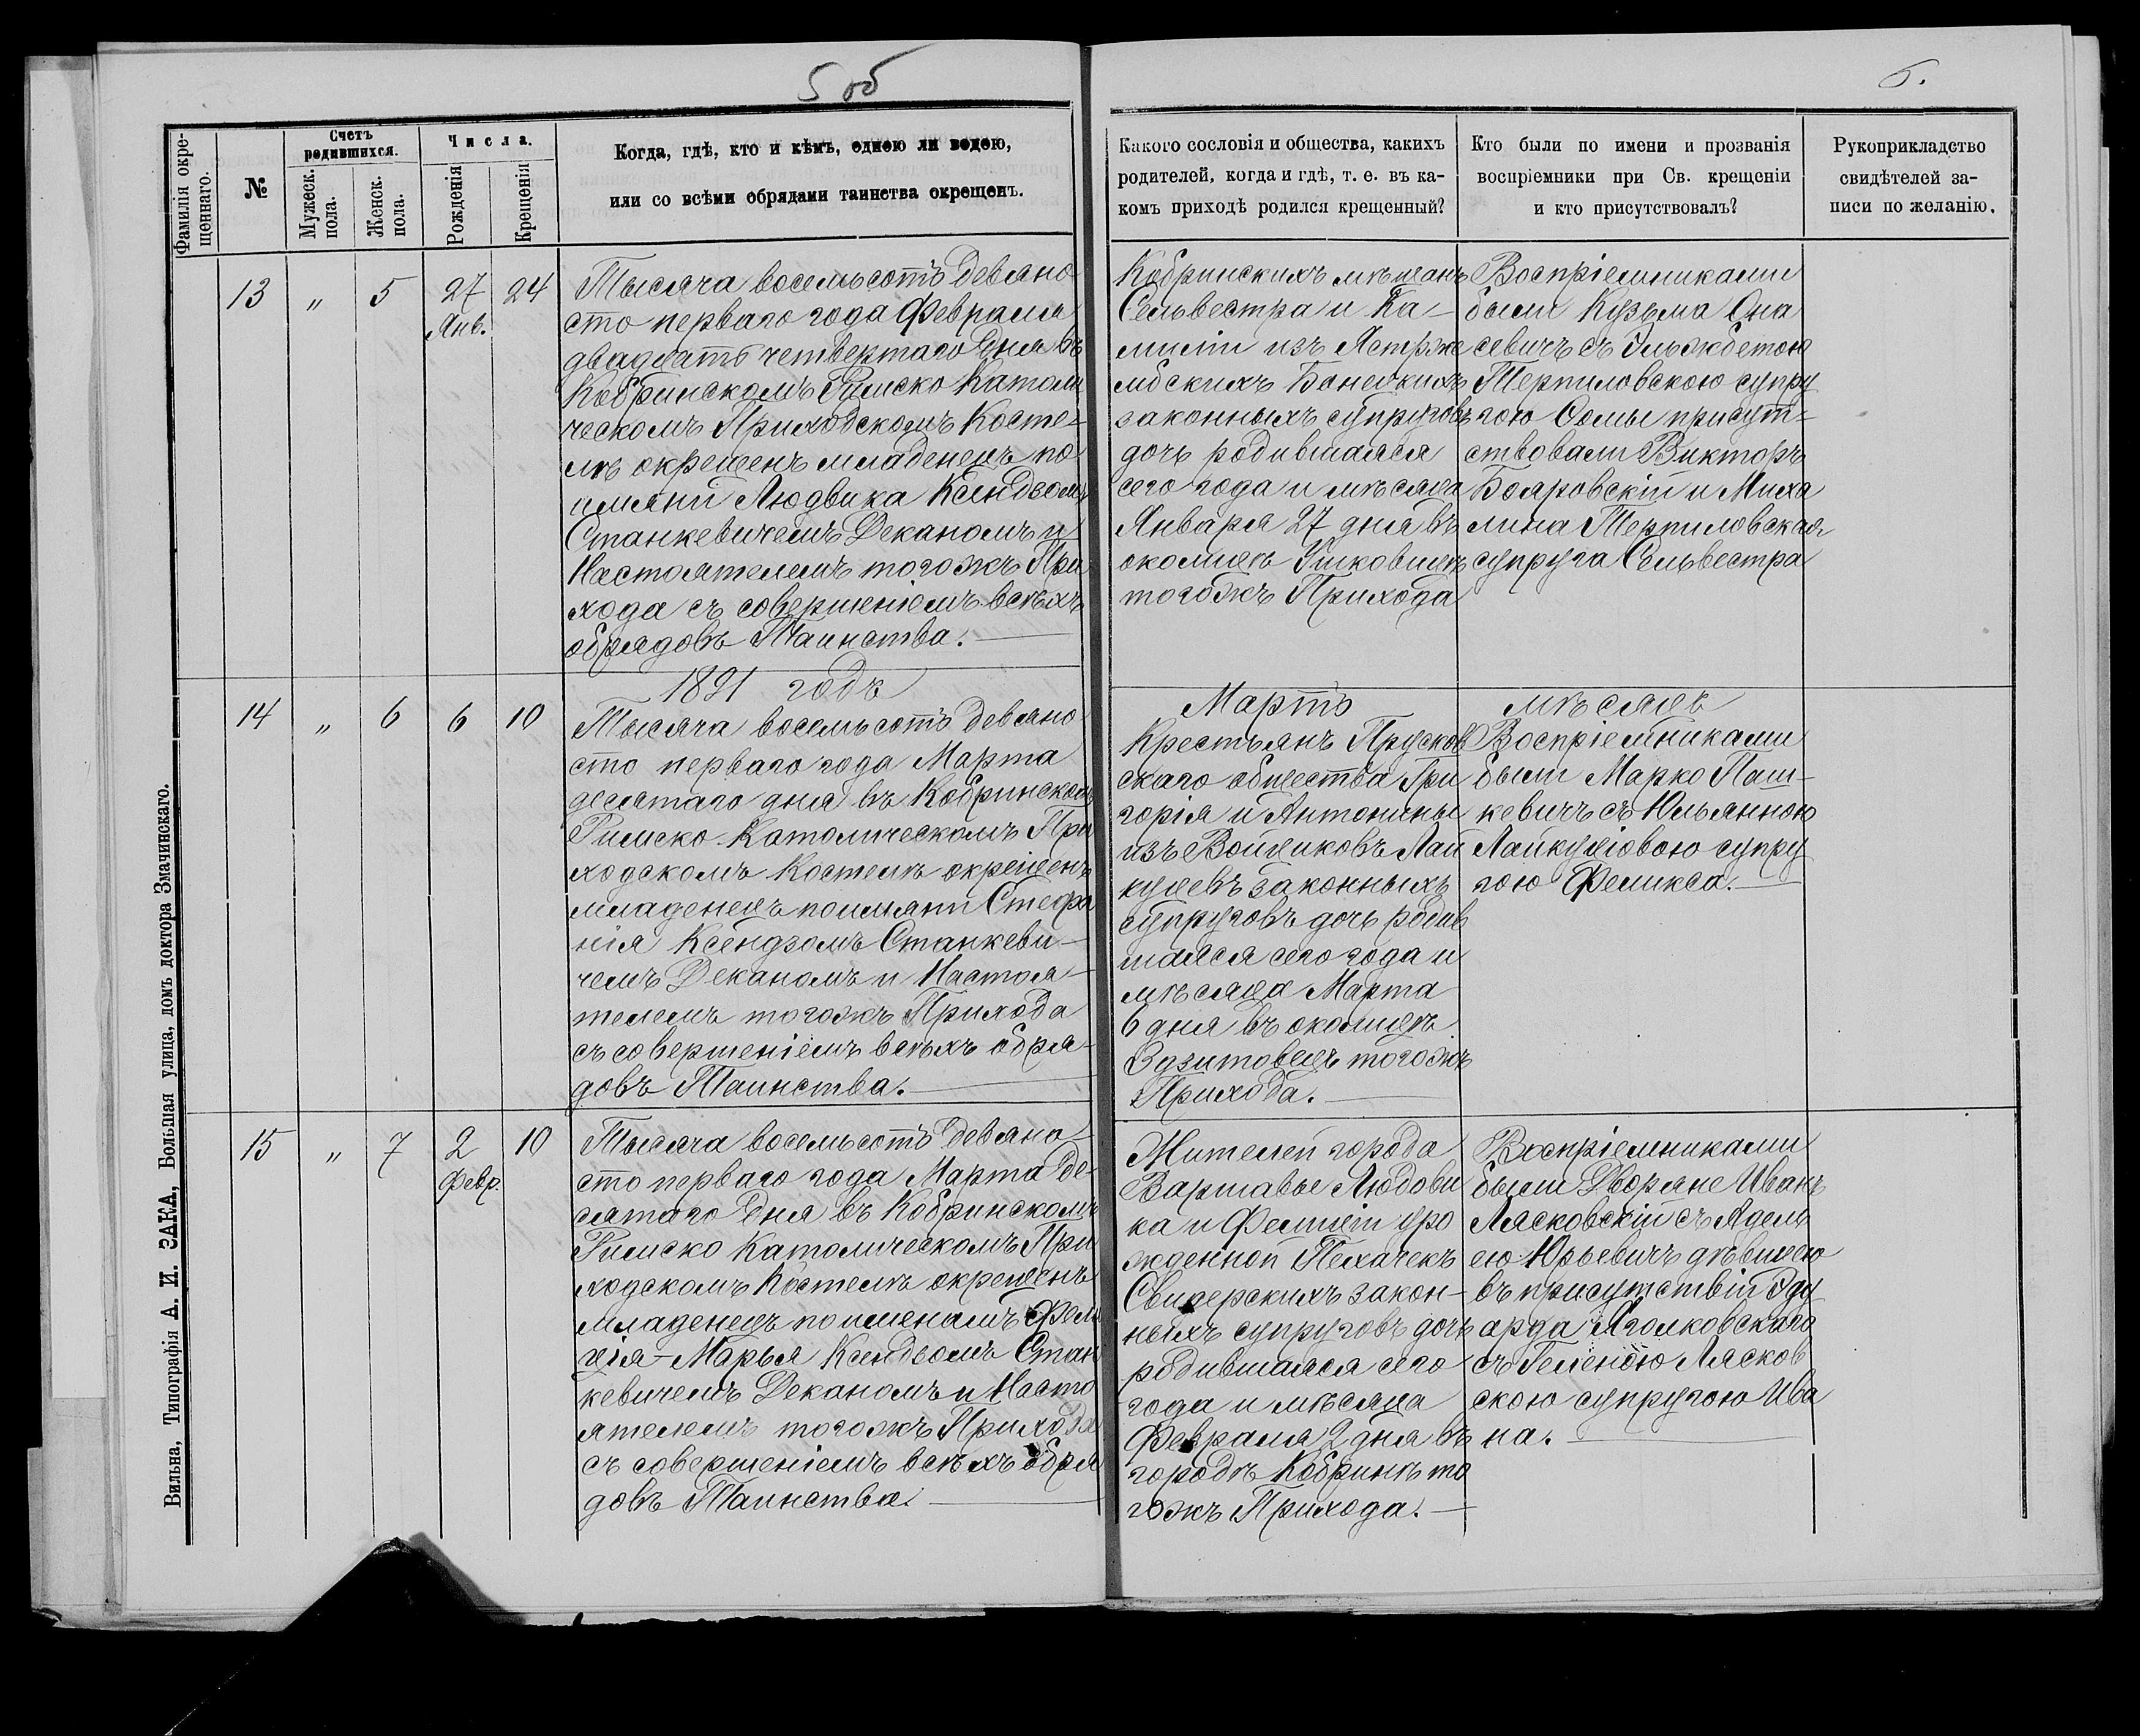 5 об
6.
Фамилія окре-
щеннаго.
№
Счетъ
родившихся.
Мужеск.
пола.
Женск.
пола.
Числа.
Рожденія
Крещенія
Когда, гдѣ, кто и кѣмъ, одною ли водою,
или со всѣми обрядами таинства окрещенъ.
Какого сословія и общества, какихъ
родителей, когда и гдѣ, т. е. въ ка-
комъ приходѣ родился крещенный?
Кто были по имени и прозванія
воспріемники при Св. крещеніи
и кто присутствовалъ?
Рукоприкладство
свидѣтелей за-
писи по желанію.
13 " 5 27 24
Янв.
Тысяча восемьсотъ девяно
сто перваго года Февраля
двадцать четвертаго дня въ
Кобринскомъ Римско Католи
ческомъ Приходскомъ Косте-
лѣ окрещенъ младенецъ по
имяни Людвика Ксендзомъ
Станкевичемъ Деканомъ и
Настоятелемъ тогожъ При
хода съ совершеніемъ всѣхъ
обрядовъ Таинства.
Кобринскихъ мѣщанъ
Сельвестра и Ка-
миліи изъ Ястрже
мбскихъ
законныхъ супруговъ
дочь родившаяся
сего года и мѣсяца
Января 27 дня въ
околицѣ
тогожъ Прихода
Воспріемниками
были Кузьма Она
севичъ съ Эльжбетою
Терпиловскою супру
гою Фомы присут-
ствовали Викторъ
Бояровскій и Миха
лина Терпиловская
супруга Сельвестра
1891 годъ
Мартъ мѣсяцъ
14 " 6 6 10
Тысяча восемьсотъ девяно
сто перваго года Марта
десятаго дня въ Кобринскомъ
Римско-Католическомъ При
ходскомъ Костелѣ окрещенъ
младенецъ по имяни Стефа
нія Ксендзомъ Станкеви-
чемъ Деканомъ и Настоя-
телемъ тогожъ Прихода
съ совершеніемъ всѣхъ обря-
довъ Таинства.
Крестьянъ Прусков
скаго общества Гри
горія и Антонины
изъ Войциковъ Лай
куцевъ законныхъ
супруговъ дочь родив
шаяся сего года и
мѣсяца Марта
6 дня въ околицѣ
Здзитовецъ тогожъ
Прихода.
Воспріемниками
были Марко Паш-
кевичъ съ Юльянною
супру
гою Феликса.
15 " 7 2 10
Февр.
Тысяча восемьсотъ девяно-
сто перваго года Марта де-
сятаго дня въ Кобринскомъ
Римско Католическомъ При
ходскомъ Костелѣ окрещенъ
младенецъ по именамъ Фели
ція-Марья Ксендзомъ Стан
кевичемъ Деканомъ и Насто
ятелемъ тогожъ Прихода
съ совершеніемъ всѣхъ обря
довъ Таинства.
Жителей города
Варшавы Людови
ка и Фелиціи уро
жденной Пехачекъ
закон-
ныхъ супруговъ дочь
родившаяся сего
года и мѣсяца
Февраля 2 дня въ
городѣ Кобринѣ то
гожъ Прихода.
Воспріемниками
были Дворяне Иванъ
Лясковскій съ Адель
ею Юрьевичъ дѣвицею
въ присутствіи Эду
арда Яголковскаго
съ Геленою Лясков
скою супругою Ива
на.
Вильна, Типографія А. И. ЗАКА, Большая улица, домъ доктора Змачинскаго.